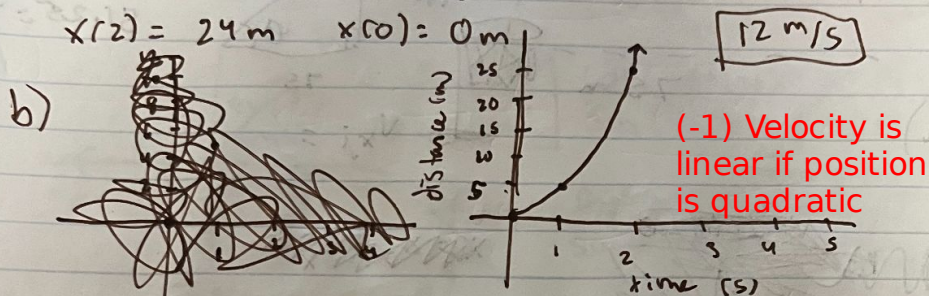 x(2) = 24m x(0) = 0m
12 m/s
b)
distance (m)
25
20
15
10
5
1 2 3 4 5
time (s)
(-1) Velocity is
linear if position
is quadratic